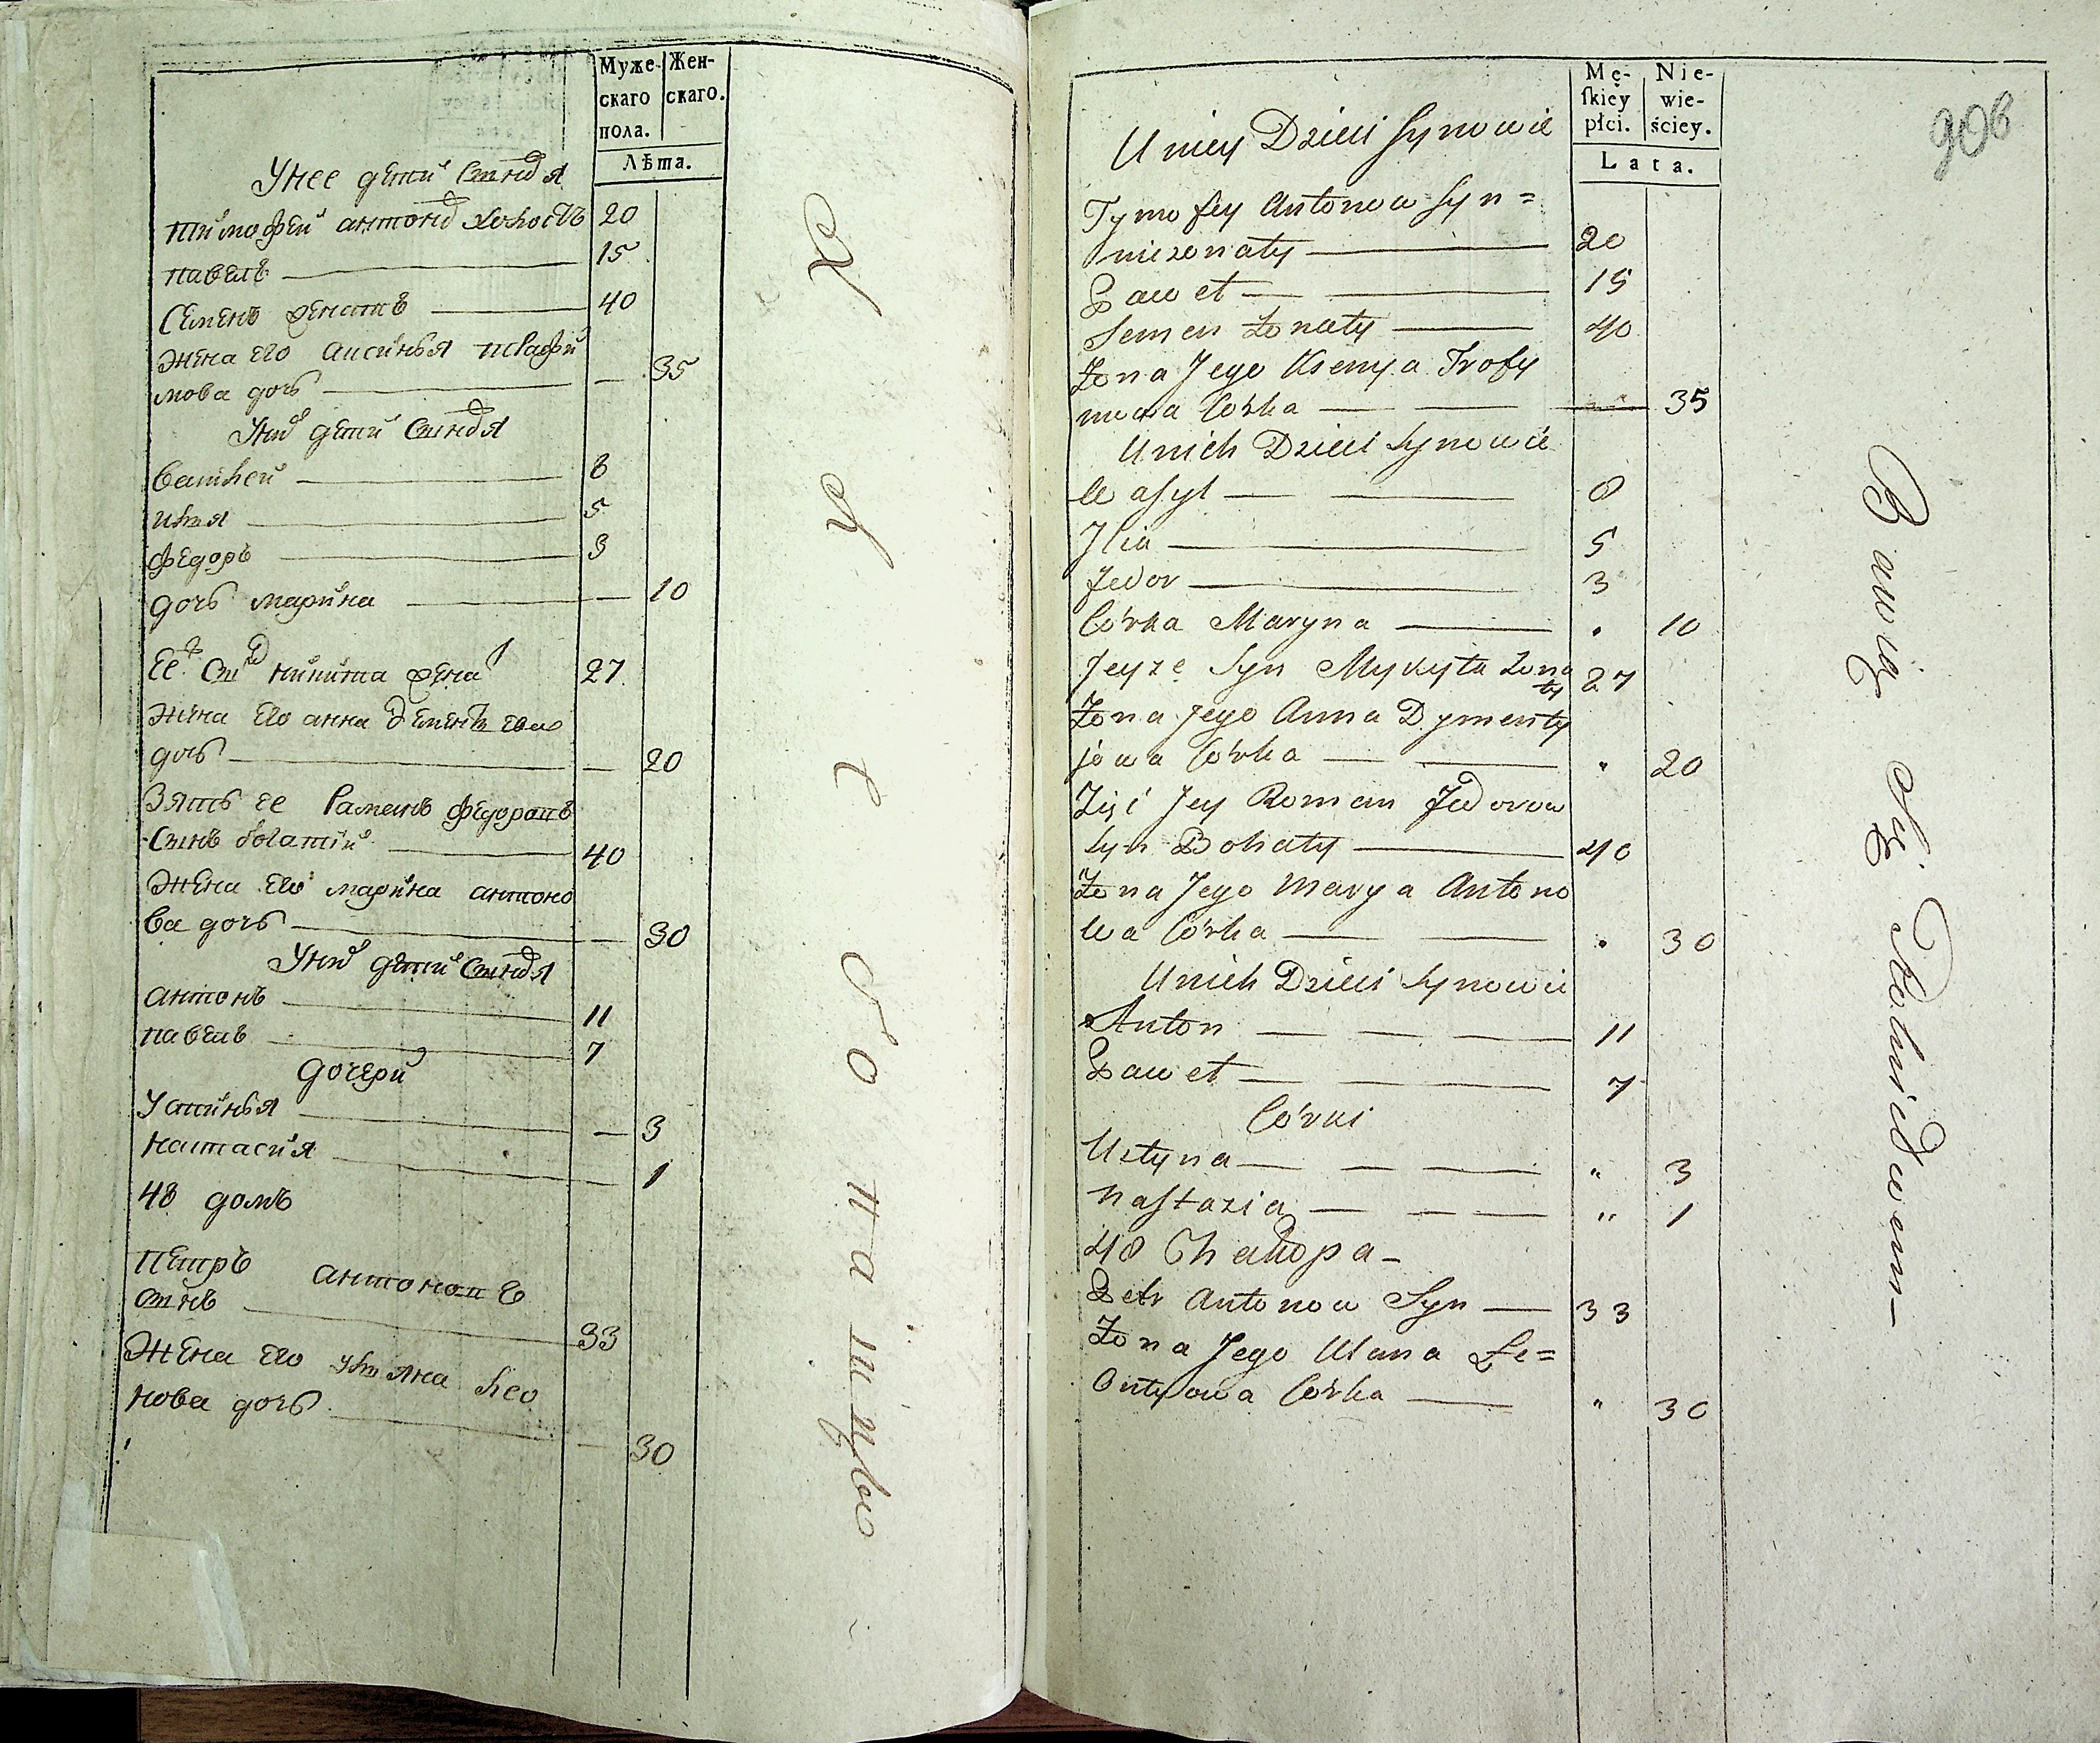 Муже-
скаго
пола.
Жен-
скаго.
Лѣта.
У нее дети синов я
тимофей антонов холостъ 20
павелъ 15
Семенъ женатъ 40
жена его аксинья трофи
мова дочь — 35
У них дети синов я
василей 8
илья 5
федоръ 3
дочь марина — 10
Ее ж син никита жена 27
жена его анна дементь ева
дочь — 20
Зять ее Раманъ федоровъ
синъ богатий 40
жена его марина антоно
ва дочь — 30
У них детей синов я
антонъ 11
павелъ 7
дочери
Устинья — 3
настасия 1
48 домъ
петръ антоновъ
синъ 33
жена его ульяна лео
нова дочь — 30
Mę-
ſkiéy
płci.
Nie-
wie-
ściey.
Lata.
908
U niey Dzieci Synowie
Tymofiey Antonow Syn=
niezonaty 20
Paweł 15
Semen żonaty 40
Żona Jego Ksenya Trofy
mowa Córka 35
U nich Dzieci Synowie
Waſyl 8
Ilia 5
Fedor 3
Córka Maryna " 10
Jeyze Syn Mykyta żona
ty 27
Żona Jego Anna Dymenty
jowa Córka " 20
Zięć Jey Roman Fedorow
Syn Bohaty 40
Żona Jego Marya Antono
wa Córka " 30
U nich Dzieci Synowie
Anton 11
Paweł 7
Córki
Ustyna " 3
Naſtazia " 1
48 Chałupa –
Petr Antonow Syn 33
Żona Jego Ulana Le=
Ontyowa Córka " 30